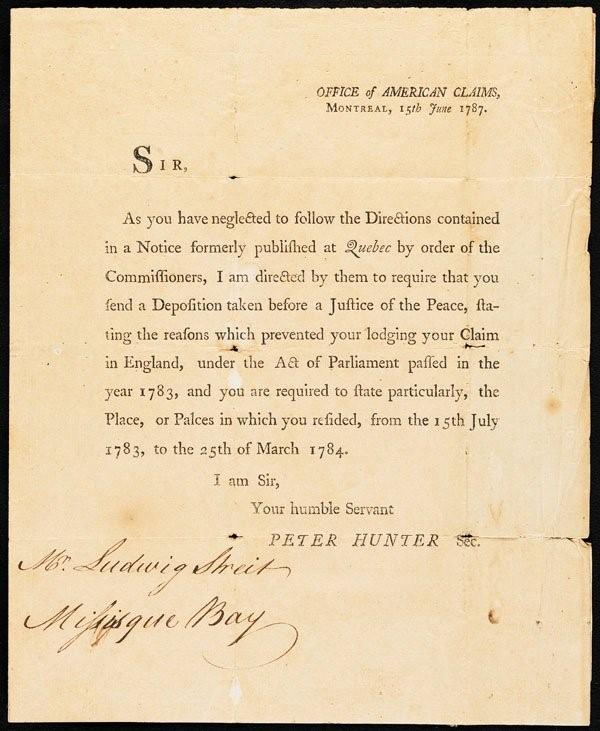 OFFICE of AMERICAN CLAIMS,
MONTREAL, 15th June 1787.
SIR,
As you have neglected to follow the Directions contained
in a Notice formerly publiſhed at Quebec by order of the
Commiſſioners, I am directed by them to require that you
ſend a Depoſition taken before a Juſtice of the Peace, ſta-
ting the reaſons which prevented your lodging your Claim
in England, under the Act of Parliament paſſed in the
year 1783, and you are required to ſtate particularly, the
Place, or Palces in which you reſided, from the 15th July
1783, to the 25th of March 1784.
I am Sir,
Your humble Servant
PETER HUNTER Sec.
Mr. Ludwig Streit
Miſisque Bay